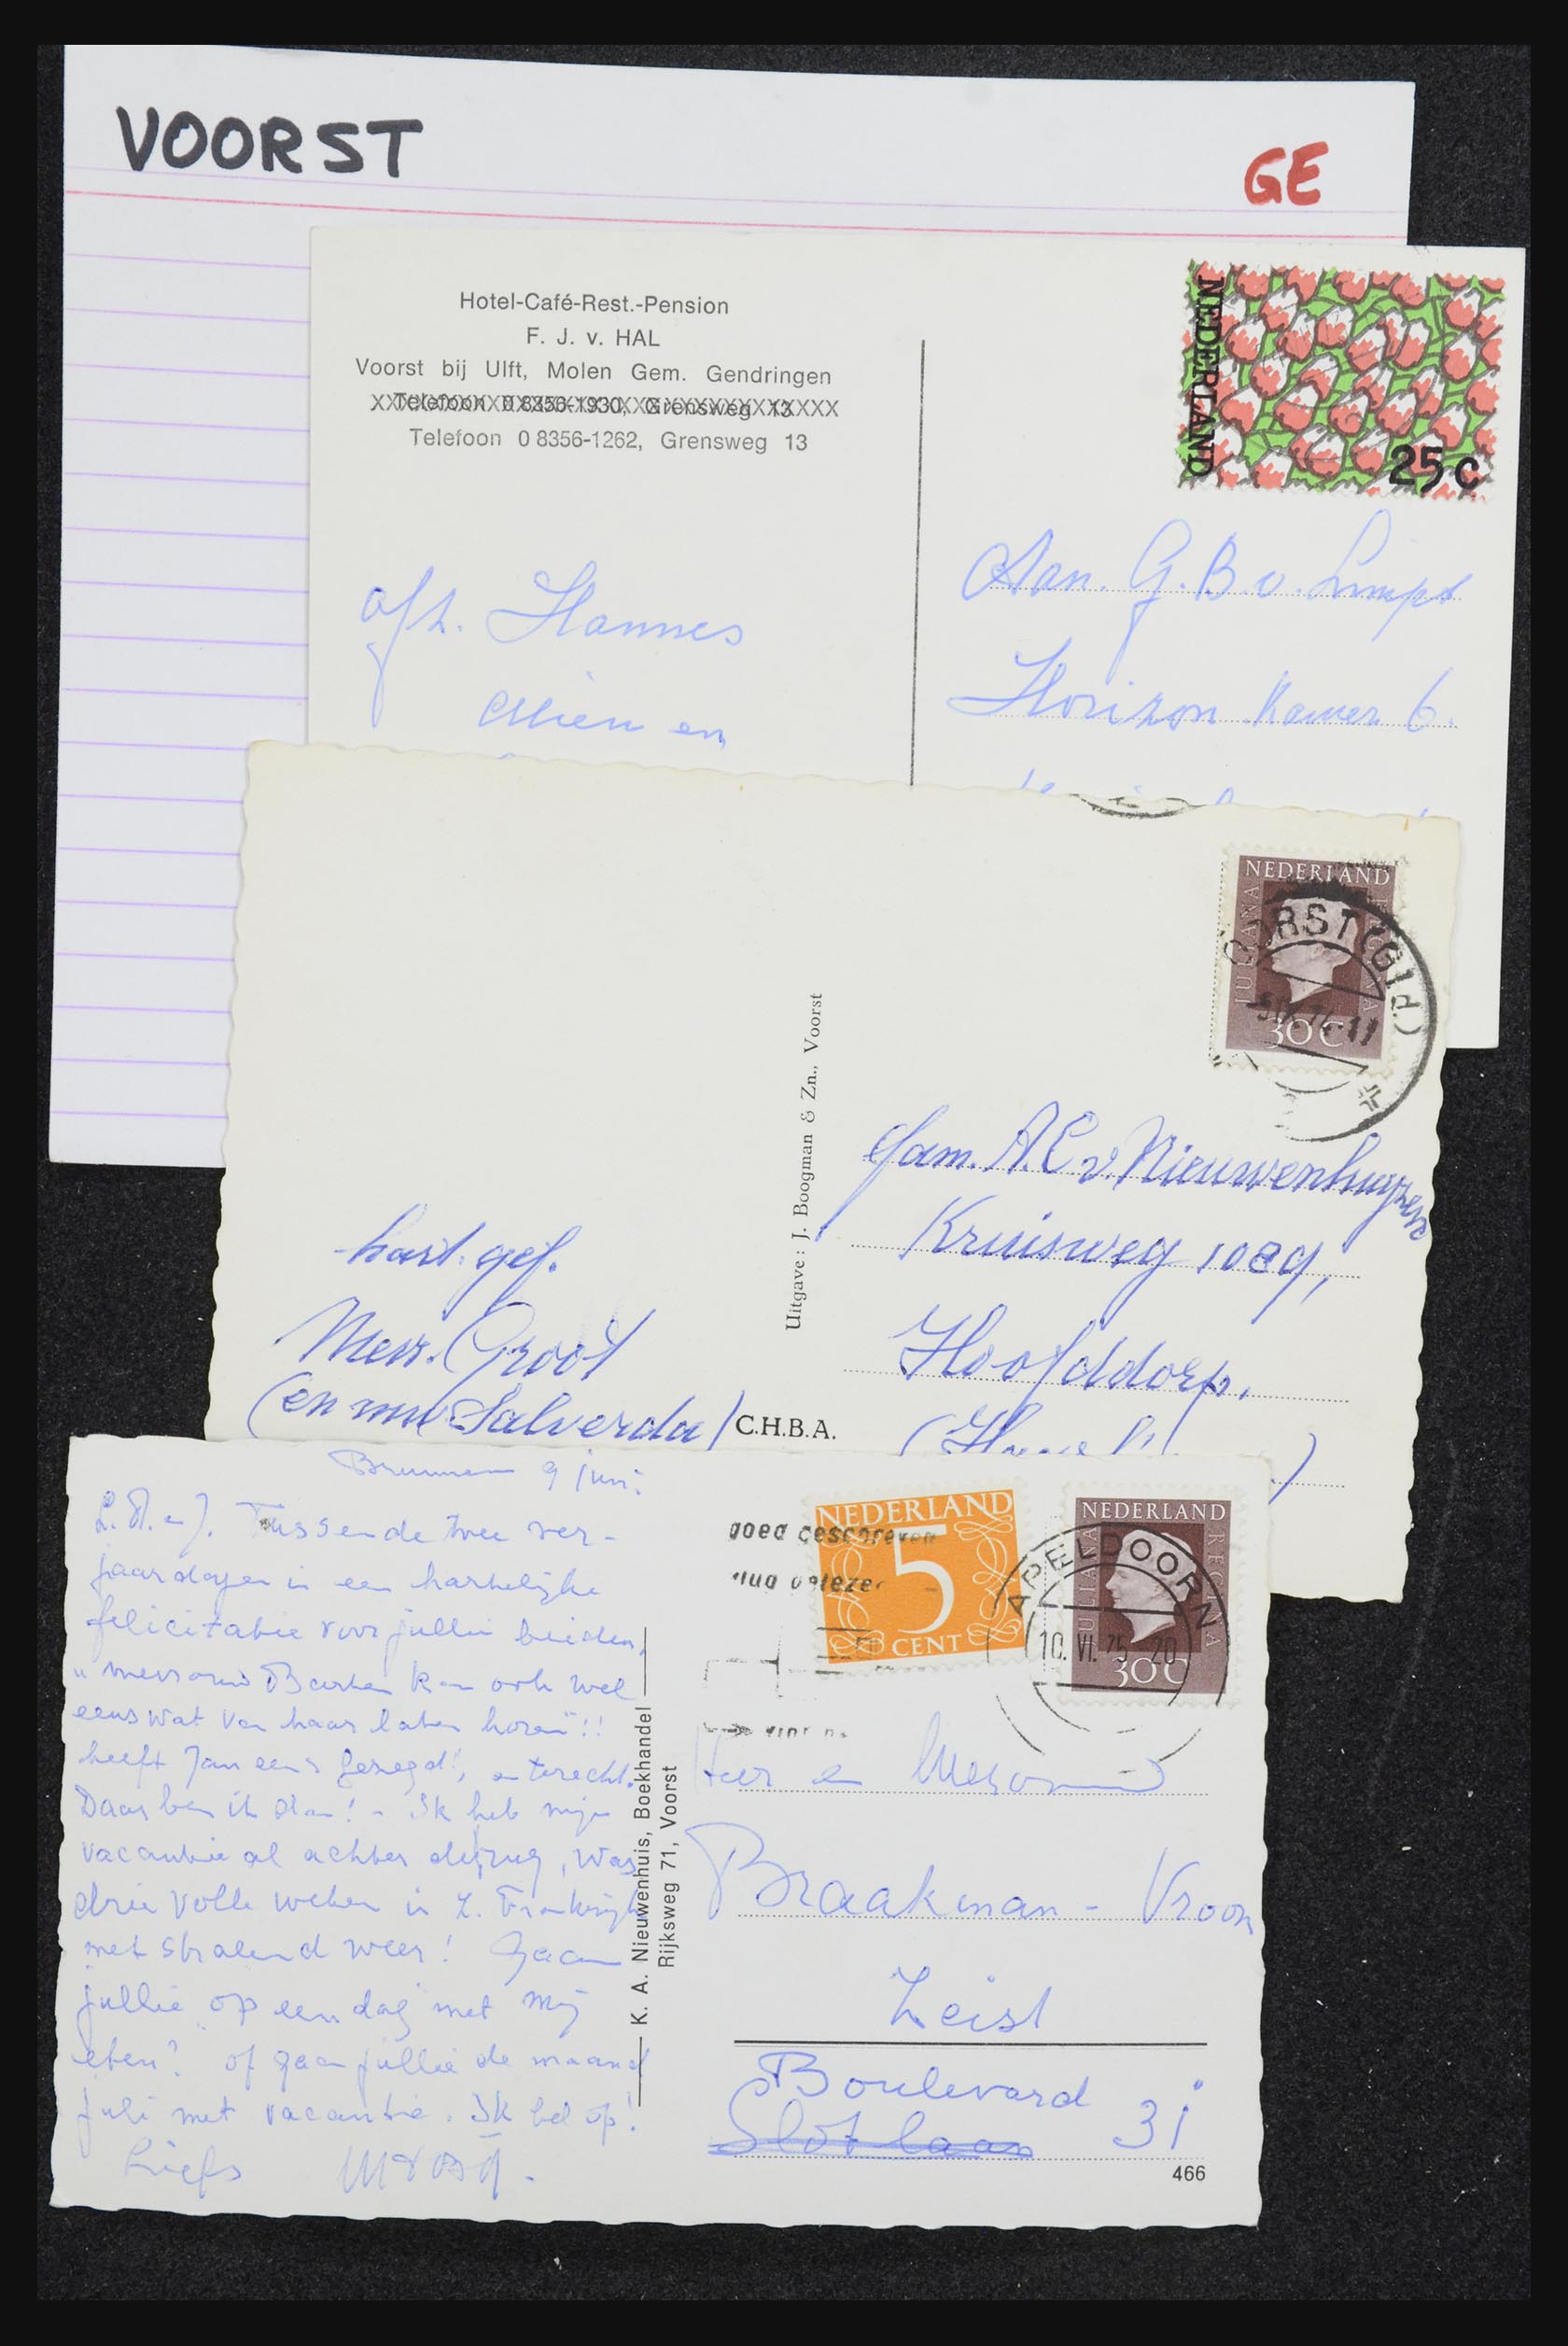 VOORST
GE
Hotel-Café-Rest.-Pension
F. J. v. HAL
Voorst bij Ulft, Molen Gem. Gendringen
Telefoon 0 8356-1930, Grensweg 13
Telefoon 0 8356-1262, Grensweg 13
NEDERLAND
25 c
afz. Hannes
Mien en
Aan. G. B. v.
Horizon Kamer 6.
NEDERLAND
JULIANA REGINA
30 C
VOORST (Gld)
Uitgave: J. Boogman & Zn., Voorst
Fam. A.C. v. Nieuwenhuyzen
Kruisweg 1089,
Hoofddorp.
hart. gef.
Mevr. Groot
(en mw Salverda)
C.H.B.A.
Brummen 9 juni.
L. A. en J. Tussen de twee ver-
jaardagen in een hartelijke
felicitatie voor jullie beiden,
"mevrouw kan ook wel
eens wat van haar laten horen"!!
heeft Jan eens gezegd!, en terecht.
Daar ben ik dan! - Ik heb mijn
vacantie al achter de rug, was
drie volle weken in Z. Frankrijk
met stralend weer! Gaan
jullie op een dag met mij
eten? of gaan jullie de maand
juli met vacantie. Ik bel op!
Liefs
K. A. Nieuwenhuis, Boekhandel
Rijksweg 71, Voorst
NEDERLAND
5
CENT
NEDERLAND
JULIANA REGINA
30 C
APELDOORN
10. VI. 75. 20
Heer en Mevrouw
Braakman - Vroon
Zeist
Boulevard
Slotlaan 31
466